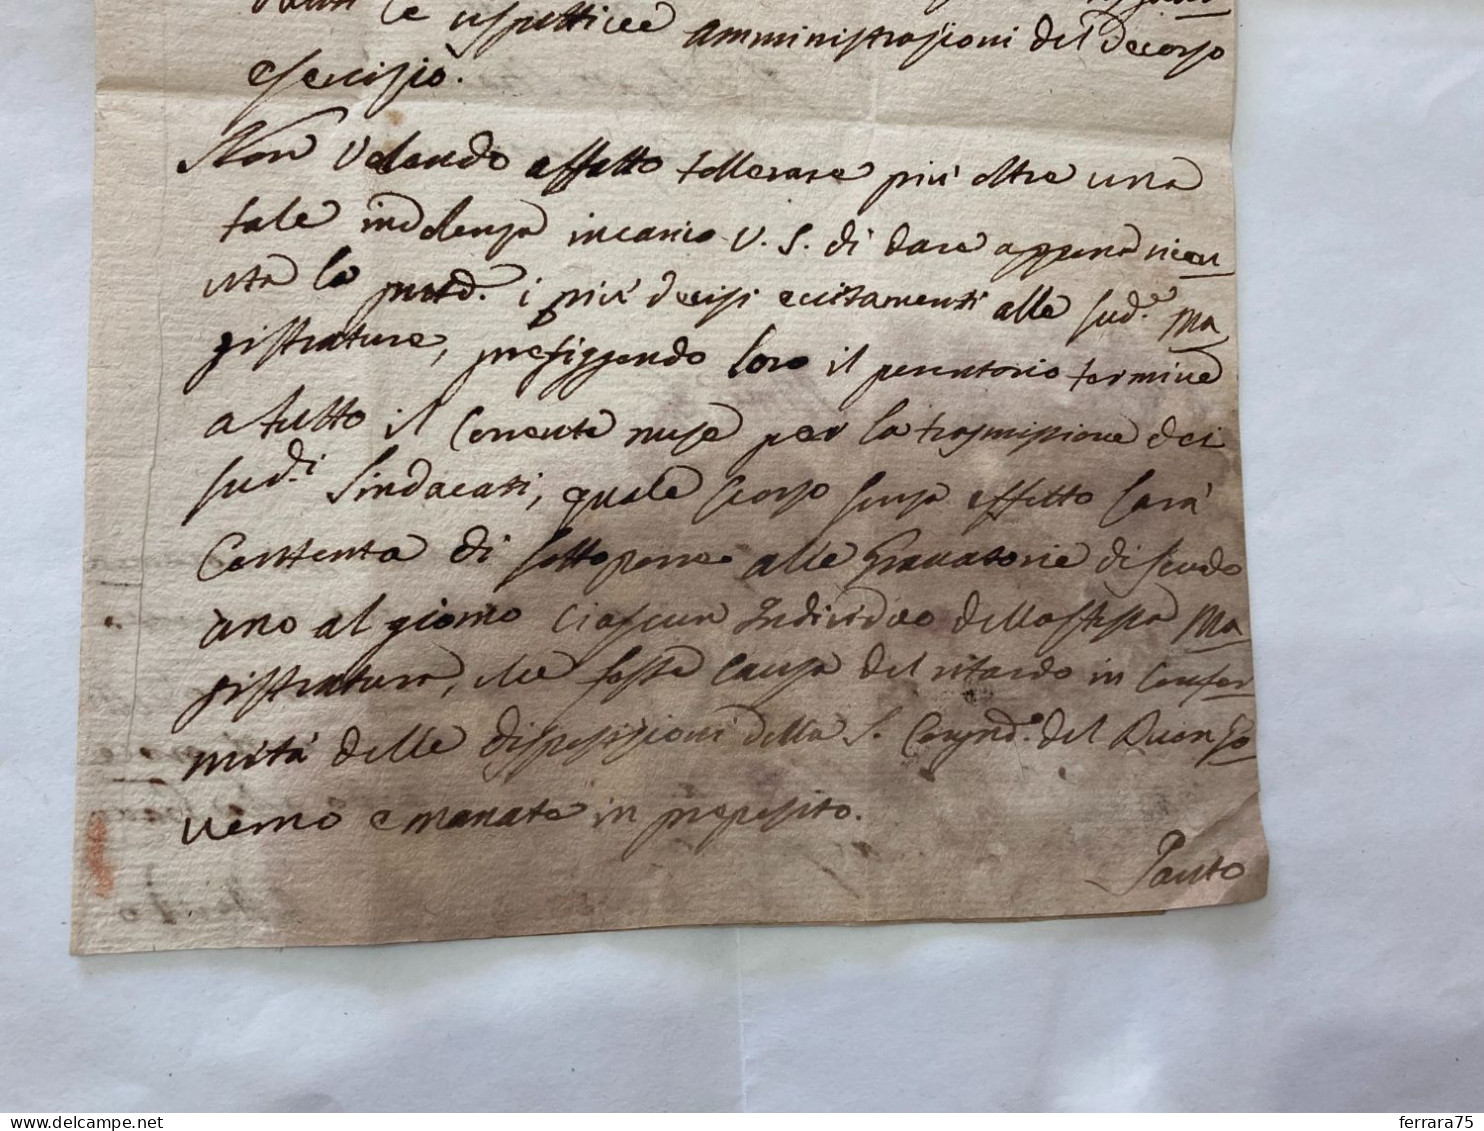 le rispettive amministrazioni del decorso
esercizio.
Non Volendo affatto tollerare più oltre una
tale indolenza incarico V. S. di dare appena ricev
uta la pnte d. i più decisi eccitamenti alle sud.e Ma
gistrature, prefiggendo loro il perentorio termine
a tutto il Corrente mese per la trasmissione dei
sud.i Sindacati, quale scorso senza effetto sarà
Contenta di sottoporre alle Gravatorie di scudo
uno al giorno Ciascun Individuo della stessa Ma
gistratura, che fosse causa del ritardo in Confor
mità delle disposizioni della S. Congnd. del Buon Go
verno emanate in proposito.
Tanto
ferrara75